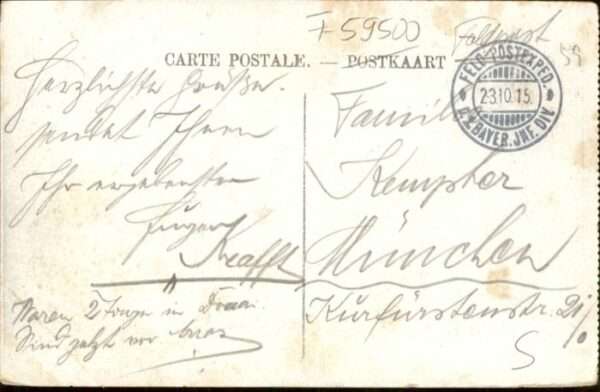 F 59500
Feldpost
59
CARTE POSTALE. — POSTKAART
FELD-POSTEXPED.
23.10.15.
BAYER. INF. DIV.
Herzlichste Grüße
sendet Ihnen
Ihr ergebenster
Eugen
Krafft
Waren 2 Tage in Douai.
Sind jetzt vor Arras
Familie
Kempter
München
Kurfürstenstr. 21/0
S